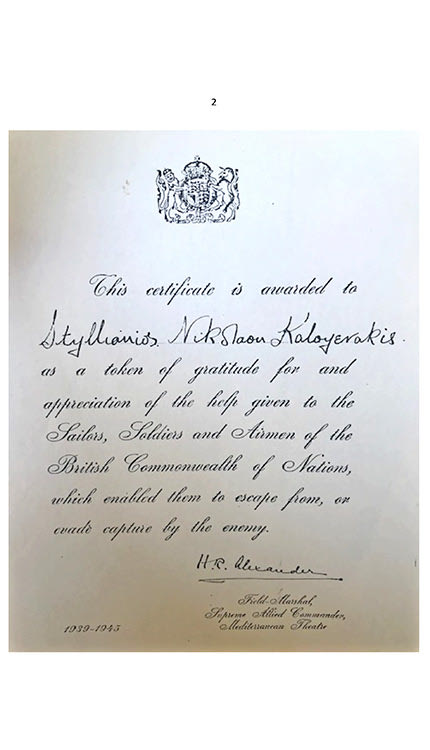 2
This certificate is awarded to
Styllianios Nikolaou Kaloyerakis.
as a token of gratitude for and
appreciation of the help given to the
Sailors, Soldiers and Airmen of the
British Commonwealth of Nations,
which enabled them to escape from, or
evade capture by the enemy.
H.R. Alexander
Field-Marshal,
Supreme Allied Commander,
Mediterranean Theatre
1939-1945